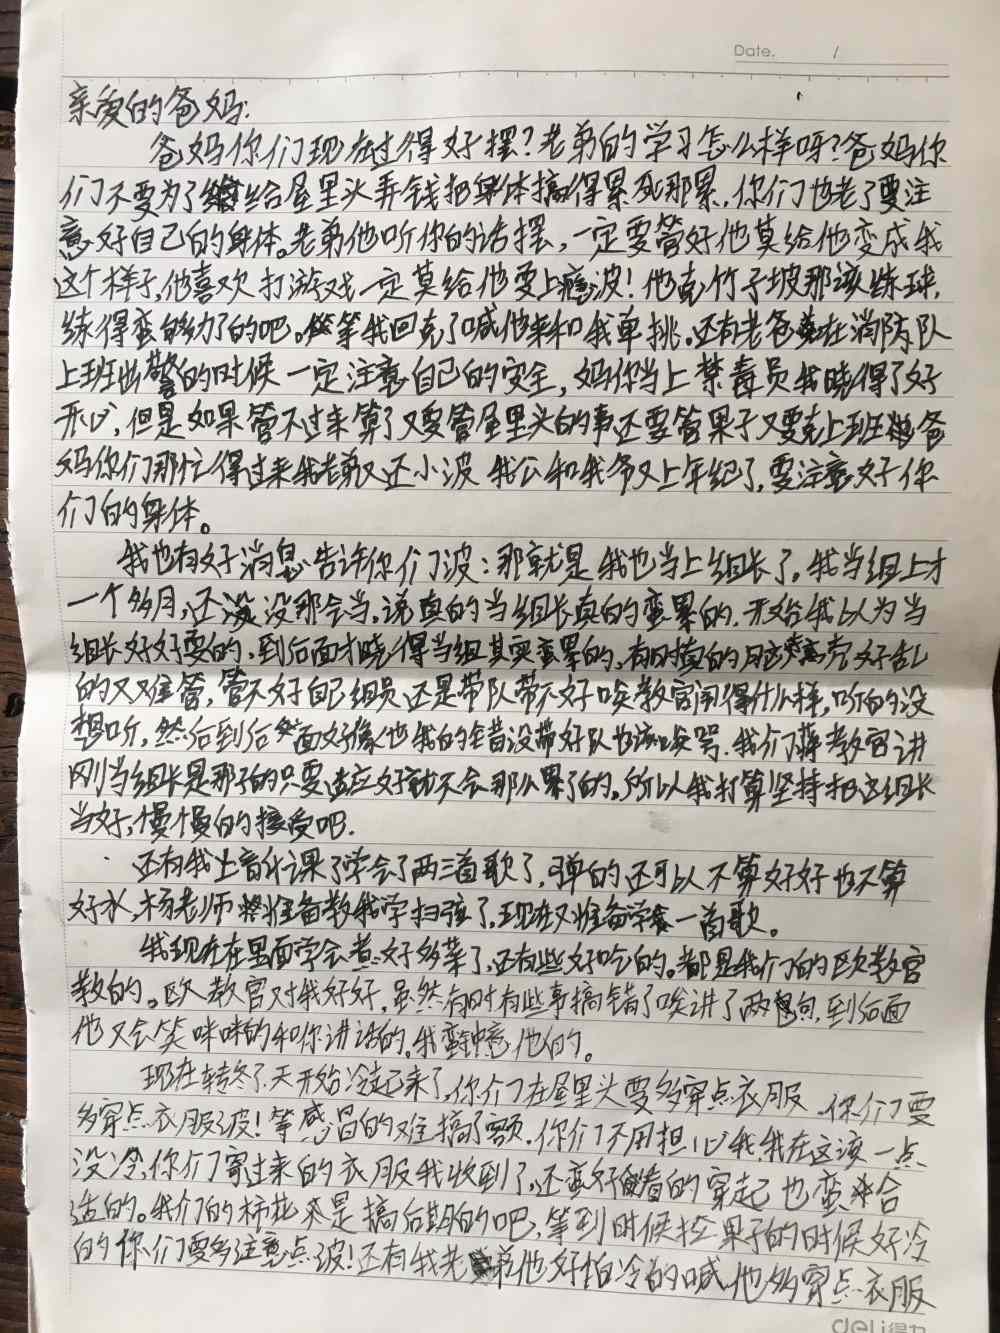 Date. /
亲爱的爸妈:
爸妈你们现在过得好摆?老弟的学习怎么样呀?爸妈你
们不要为了给屋里头弄钱把身体搞得累死那累,你们也老了要注
意好自己的身体。老弟他听你的话摆,一定要管好他莫给他变成我
这个样子,他喜欢打游戏一定莫给他耍上瘾波!他克竹子坡那该练球,
练得蛮够力了的吧。等我回克了喊他来和我单挑。还有老爸在消防队
上班出警的时候一定注意自己的安全,妈你当上禁毒员我晓得了好
开心,但是如果管不过来算了又要管屋里头的事还要管果子又要克上班爸
妈你们那忙得过来我老弟又还小波 我公和我爷又上年纪了,要注意好你
们的身体。
我也有好消息告诉你们波:那就是我也当上组长了。我当组上才
一个多月,还没那会当。说真的当组长真的蛮累的,开始我以为当
组长好好耍的,到后面才晓得当组其实蛮累的,有时真的好乱
的又难管,管不好自己组员还是带队带不好唉教官闹得什么样,听的没
想听,然后到后面好像也我的错没带好队也该唉骂,我们蒋教官讲
刚当组长是那子的只要适应好就不会那么累了的。所以我打算坚持把这组长
当好,慢慢的接受吧.
还有我上音乐课了学会了两三首歌了,弹的还可以不算好好也不算
好水,杨老师准备教我学扫弦了,现在又准备学一首歌。
我现在在里面学会煮好多菜了,还有些好吃的。都是我们的欧教官
教的。欧教官对我好好,虽然有时有些事搞错了唉讲了两句,到后面
他又会笑咪咪的和你讲话的。我蛮钟意他的。
现在转冬了天开始冷起来了,你们在屋里头要多穿点衣服 你们要
多穿点衣服波!等感冒的难搞了额,你们不用担心我,我在这该一点
没冷,你们寄过来的衣服我收到了,还蛮好看的穿起也蛮合
适的。我们的柿子来是搞后期的吧,等到时候拉果子的时候好冷
的你们要多注意点波!还有我老弟他好怕冷的喊他多穿点衣服
deli得力